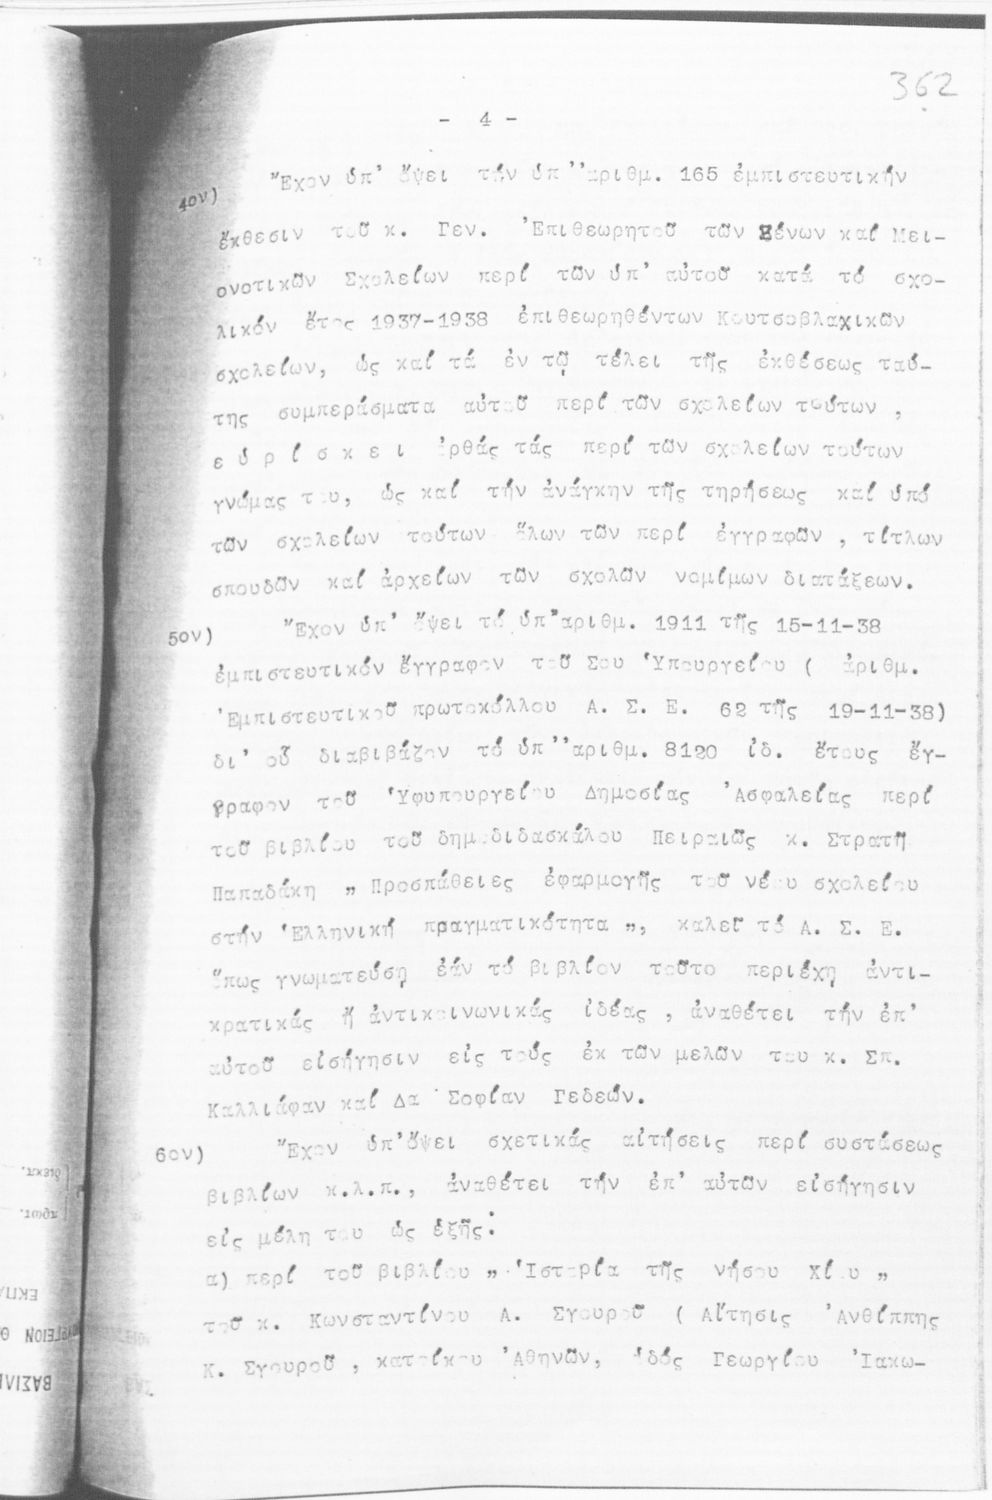 362
- 4 -
4ον) Ἔχον ὑπ' ὄψει τήν ὑπ' ἀριθμ. 165 ἐμπιστευτικήν
ἔκθεσιν τοῦ κ. Γεν. Ἐπιθεωρητοῦ τῶν Ξένων καί Μει-
ονοτικῶν Σχολείων περί τῶν ὑπ' αὐτοῦ κατά τό σχο-
λικόν ἔτος 1937-1938 ἐπιθεωρηθέντων Κουτσοβλαχικῶν
σχολείων, ὡς καί τά ἐν τῷ τέλει τῆς ἐκθέσεως ταύ-
της συμπεράσματα αὐτοῦ περί τῶν σχολείων τούτων ,
ε ὑ ρ ί σ κ ε ι ὀρθάς τάς περί τῶν σχολείων τούτων
γνώμας του, ὡς καί τήν ἀνάγκην τῆς τηρήσεως καί ὑπό
τῶν σχολείων τούτων ὅλων τῶν περί ἐγγραφῶν , τίτλων
σπουδῶν καί ἀρχείων τῶν σχολῶν νομίμων διατάξεων.
5ον) Ἔχον ὑπ' ὄψει τό ὑπ' ἀριθμ. 1911 τῆς 15-11-38
ἐμπιστευτικόν ἔγγραφον τοῦ Σου Ὑπουργείου ( ἀριθμ.
Ἐμπιστευτικοῦ πρωτοκόλλου Α. Σ. Ε. 62 τῆς 19-11-38)
δι' οὗ διαβιβάζον τό ὑπ' ἀριθμ. 8120 ἰδ. ἔτους ἔγ-
γραφον τοῦ Ὑφυπουργείου Δημοσίας Ἀσφαλείας περί
τοῦ βιβλίου τοῦ δημοδιδασκάλου Πειραιῶς κ. Στρατῆ
Παπαδάκη „ Προσπάθειες ἐφαρμογῆς τοῦ νέου σχολείου
στήν Ἑλληνική πραγματικότητα „, καλεῖ τό Α. Σ. Ε.
ὅπως γνωματεύσῃ ἐάν τό βιβλίον τοῦτο περιέχῃ ἀντι-
κρατικάς ἤ ἀντικοινωνικάς ἰδέας , ἀναθέτει τήν ἐπ'
αὐτοῦ εἰσήγησιν εἰς τούς ἐκ τῶν μελῶν του κ. Σπ.
Καλλιάφαν καί Δα Σοφίαν Γεδεών.
6ον) Ἔχον ὑπ' ὄψει σχετικάς αἰτήσεις περί συστάσεως
βιβλίων κ.λ.π., ἀναθέτει τήν ἐπ' αὐτῶν εἰσήγησιν
εἰς μέλη του ὡς ἑξῆς:
α) περί τοῦ βιβλίου „ Ἱστορία τῆς νήσου Χίου „
τοῦ κ. Κωνσταντίνου Α. Σγουροῦ ( Αἴτησις Ἀνθίππης
Κ. Σγουροῦ , κατοίκου Ἀθηνῶν, ὁδός Γεωργίου Ἰακω-